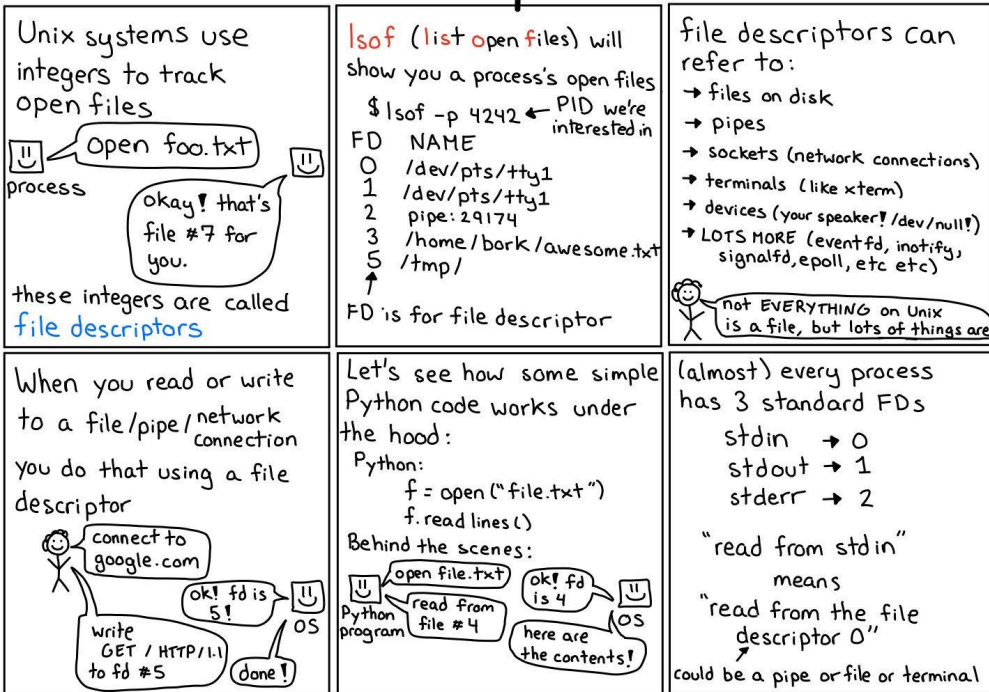 Unix systems use
integers to track
open files
open foo.txt
process
okay! that's
file #7 for
you.
these integers are called
file descriptors
lsof (list open files) will
show you a process's open files
$ lsof -p 4242 ← PID we're
interested in
FD NAME
0 /dev/pts/tty1
1 /dev/pts/tty1
2 pipe:29174
3 /home/bork/awesome.txt
5 /tmp/
FD is for file descriptor
file descriptors can
refer to:
→ files on disk
→ pipes
→ sockets (network connections)
→ terminals (like xterm)
→ devices (your speaker! /dev/null!)
→ LOTS MORE (eventfd, inotify,
signalfd, epoll, etc etc)
not EVERYTHING on Unix
is a file, but lots of things are
When you read or write
to a file/pipe/network
connection
you do that using a file
descriptor
connect to
google.com
ok! fd is
5!
OS
write
GET / HTTP/1.1
to fd #5
done!
Let's see how some simple
Python code works under
the hood:
Python:
f = open("file.txt")
f.readlines()
Behind the scenes:
open file.txt
ok! fd
is 4
Python
program
read from
file #4
OS
here are
the contents!
(almost) every process
has 3 standard FDs
stdin → 0
stdout → 1
stderr → 2
"read from stdin"
means
"read from the file
descriptor 0"
could be a pipe or file or terminal